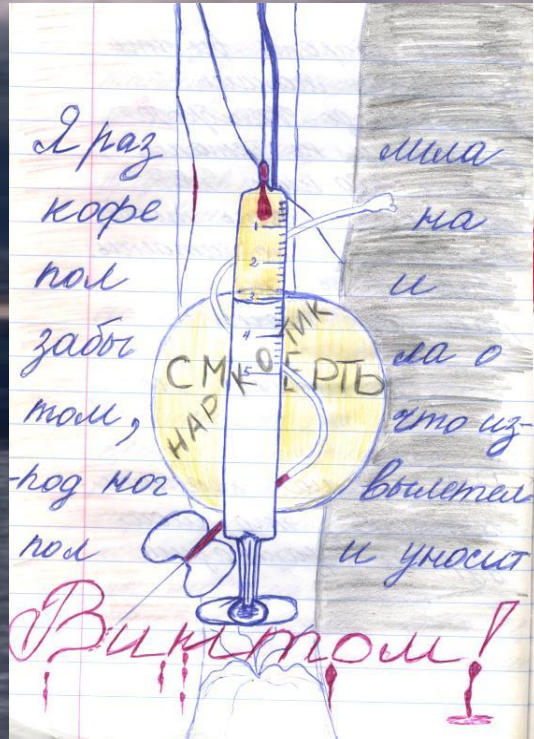 Я разлила
кофе на
пол и
забыла о
том, что из-
-под ног вылетел
пол и уносит
Винтом!
СМЕРТЬ
НАРКОТИК
1
2
3
4
5